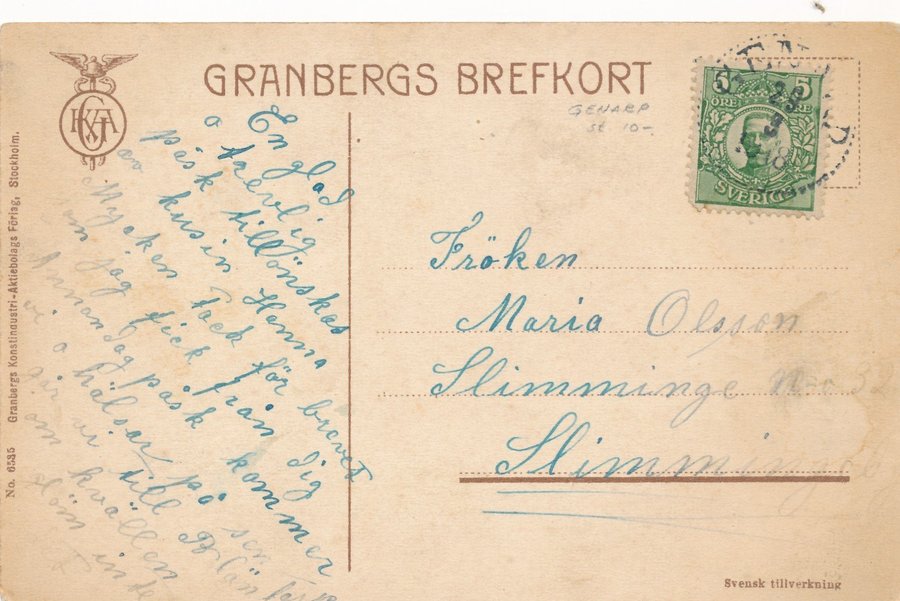 GRANBERGS BREFKORT
GENARP
SE 10-
5 5
ÖRE ÖRE
SVERIGE
En glad
o trevlig
påsk tillönskas
av kusin Hanna
Mycken tack för brevet
om jag fick från dig
Annandag påsk kommer
vi o hälsar på sen
går vi till
om kvällen
glöm inte
Fröken
Maria Olsson
Slimminge No 3
Slimminge
Svensk tillverkning
No. 6535 Granbergs Konstindustri-Aktiebolags Förlag, Stockholm.